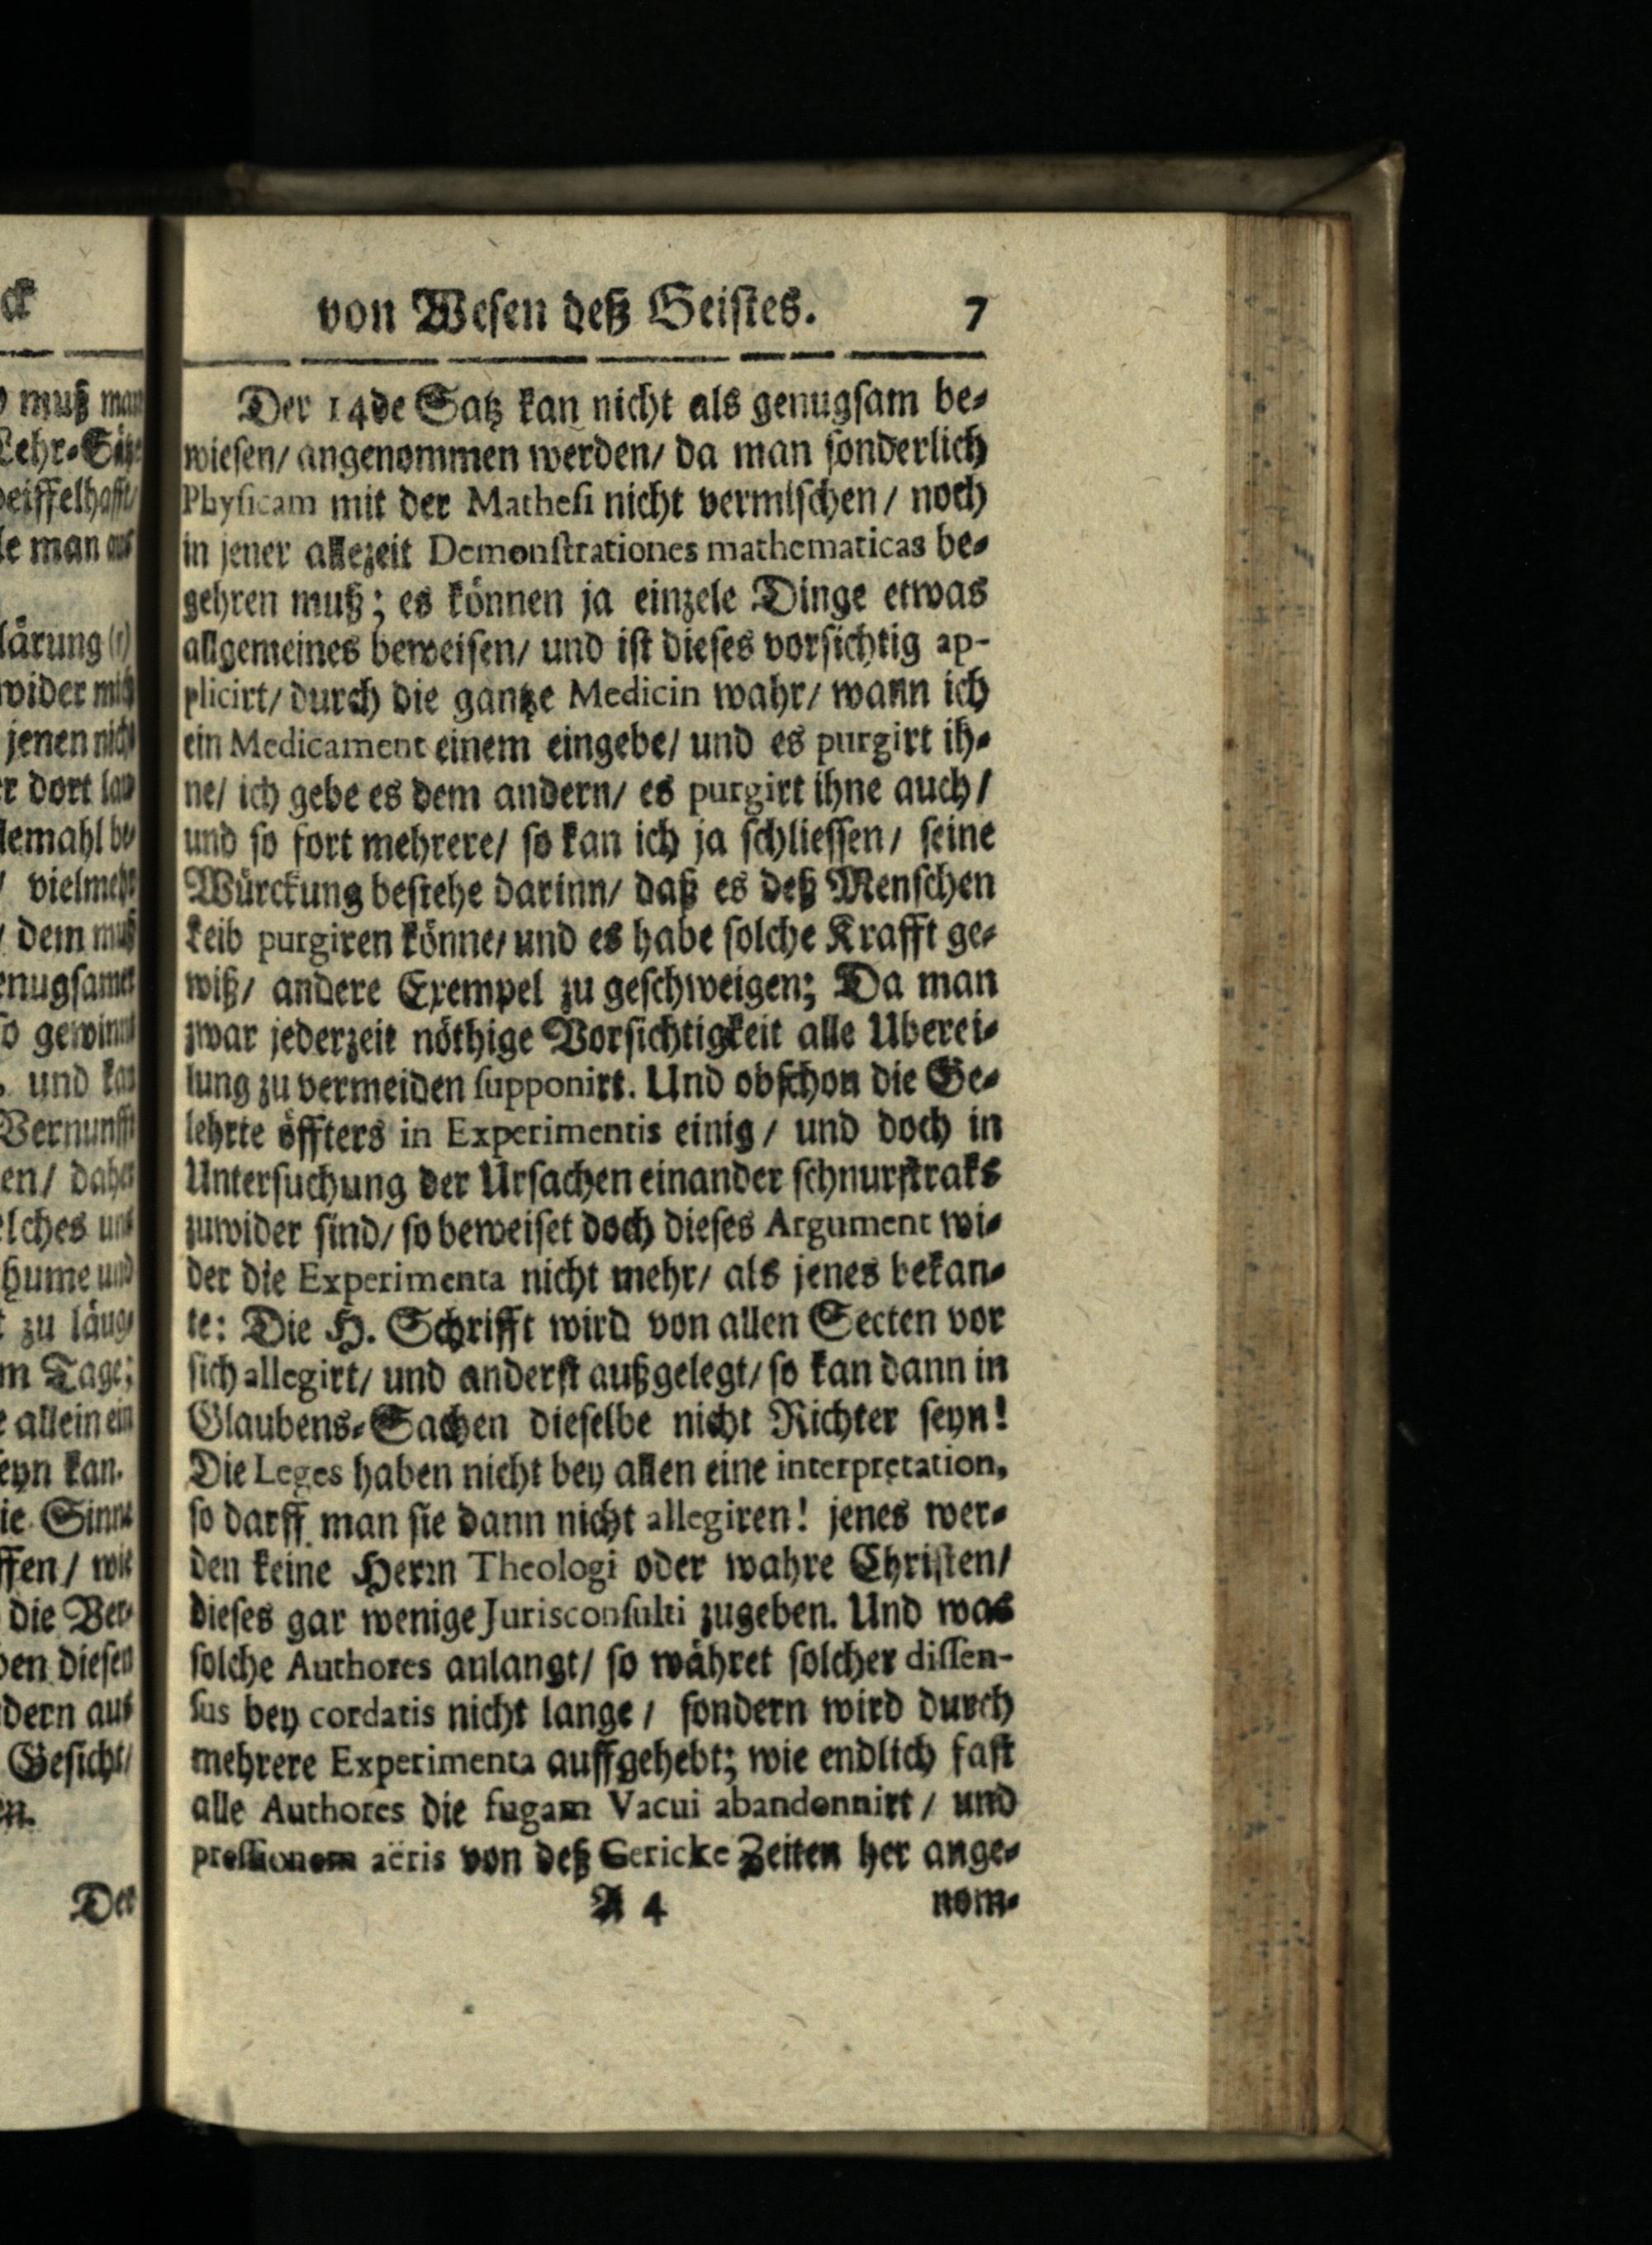 von Wesen deß Geistes. 7
Der 14de Satz kan nicht als genugsam be-
wiesen/ angenommen werden/ da man sonderlich
Physicam mit der Mathesi nicht vermischen / noch
in jener allezeit Demonstrationes mathematicas be-
gehren muß; es können ja einzele Dinge etwas
allgemeines beweisen/ und ist dieses vorsichtig ap-
plicirt/ durch die gantze Medicin wahr/ wann ich
ein Medicament einem eingebe/ und es purgirt ih-
ne/ ich gebe es dem andern/ es purgirt ihne auch/
und so fort mehrere/ so kan ich ja schliessen/ seine
Würckung bestehe darinn/ daß es deß Menschen
Leib purgiren könne/ und es habe solche Krafft ge-
wiß/ andere Exempel zu geschweigen; Da man
zwar jederzeit nöthige Vorsichtigkeit alle Uberei-
lung zu vermeiden supponirt. Und obschon die Ge-
lehrte öffters in Experimentis einig / und doch in
Untersuchung der Ursachen einander schnurstraks
zuwider sind/ so beweiset doch dieses Argument wi-
der die Experimenta nicht mehr/ als jenes bekan-
te: Die H. Schrifft wird von allen Secten vor
sich allegirt/ und anderst außgelegt/ so kan dann in
Glaubens-Sachen dieselbe nicht Richter seyn!
Die Leges haben nicht bey allen eine interpretation,
so darff man sie dann nicht allegiren! jenes wer-
den keine Herrn Theologi oder wahre Christen/
dieses gar wenige Jurisconsulti zugeben. Und was
solche Authores anlangt/ so währet solcher dissen-
sus bey cordatis nicht lange / sondern wird durch
mehrere Experimenta auffgehebt; wie endlich fast
alle Authores die fugam Vacui abandonnirt / und
pressionem aëris von deß Gericke Zeiten her ange-
A 4 nom-